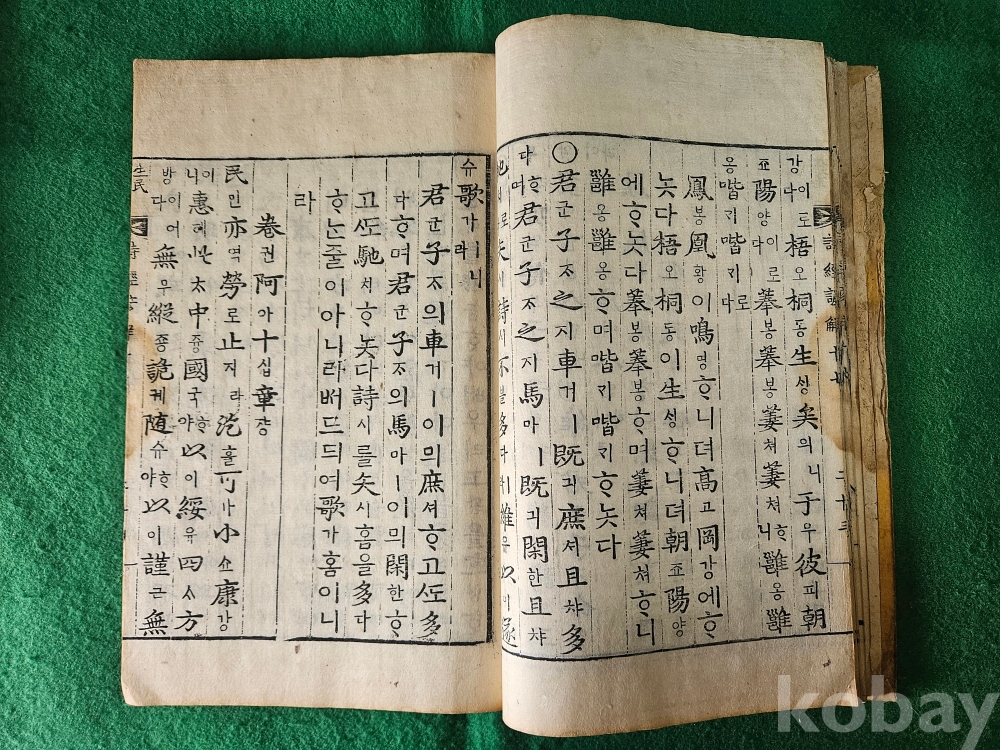 詩經諺解
강이로다梧오桐동生ᄉᆡᆼ矣의니于우彼피朝
죠陽양이로다菶봉菶봉萋쳐萋쳐ᄒᆞ니雝옹雝
옹喈ᄀᆡ喈ᄀᆡ로다
鳳봉凰황이鳴명ᄒᆞ니뎌高고岡강에ᄒᆞ
놋다梧오桐동이生ᄉᆡᆼᄒᆞ니뎌朝죠陽양
에ᄒᆞ놋다菶봉菶봉ᄒᆞ며萋쳐萋쳐ᄒᆞ니
雝옹雝옹ᄒᆞ며喈ᄀᆡ喈ᄀᆡᄒᆞ놋다
○君군子ᄌᆞ之지車거ㅣ既긔庶셔且챠多
다ᄒᆞ며君군子ᄌᆞ之지馬마ㅣ既긔閑한且챠
矢시詩시不블多다ㅣ維유以이遂
슈歌가ㅣ니라
君군子ᄌᆞ의車거ㅣ이믜庶셔ᄒᆞ고ᄯᅩ多
다ᄒᆞ며君군子ᄌᆞ의馬마ㅣ이믜閑한ᄒᆞ
고ᄯᅩ馳치ᄒᆞ놋다詩시를矢시홈을多다
ᄒᆞ논줄이아니라ᄡᅥ드듸여歌가홈이니
라
卷권阿아十십章쟝
民민亦역勞로止지라汔흘可가小쇼康강
이니惠혜此ᄎᆞ中듕國국ᄒᆞ야以이綏유四ᄉᆞ方
방이어다無무縱죵詭궤隨슈ᄒᆞ야以이謹근無
生民
kobay